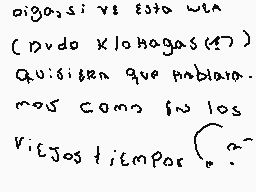 oigas, si ve esta wea
(Dudo Klo Hagas (!?)
quisiera que hablara-
mos como en los
viejos tiempos (. ?~